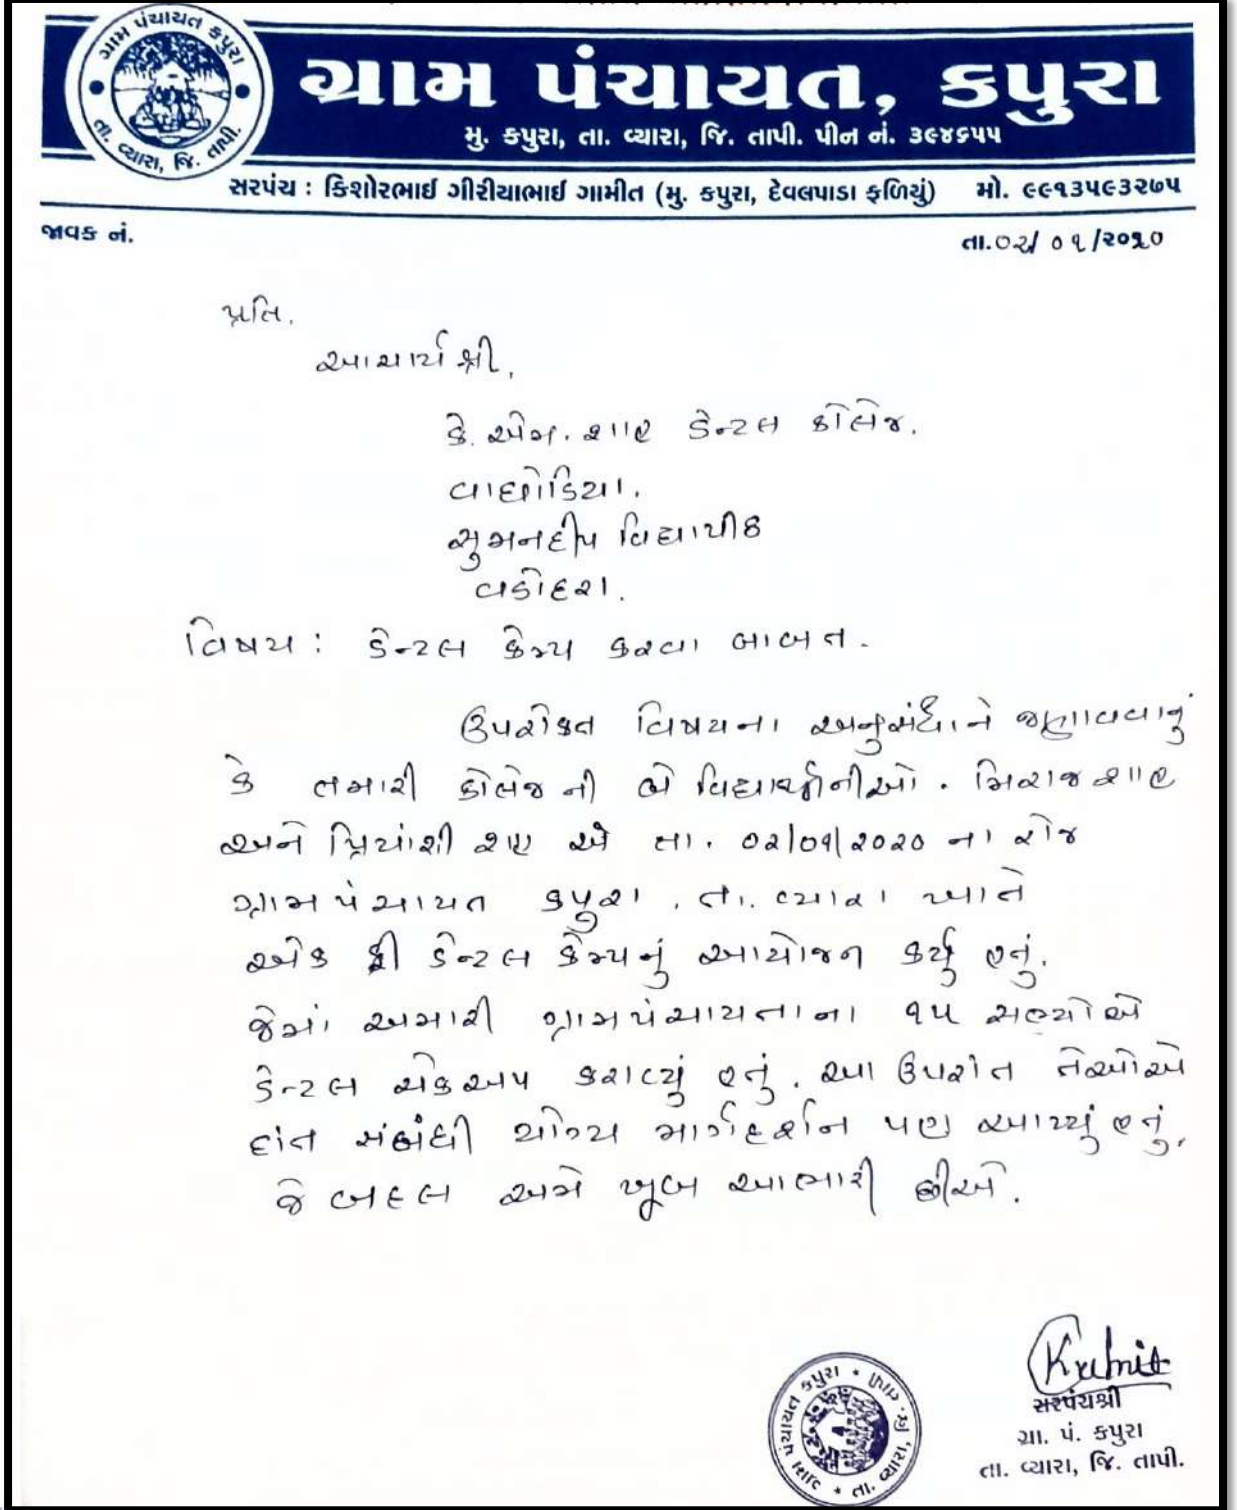 ગ્રામ પંચાયત કપુરા
તા. વ્યારા, જિ. તાપી.
ગ્રામ પંચાયત, કપુરા
મુ. કપુરા, તા. વ્યારા, જિ. તાપી. પીન નં. ૩૯૪૬૫૫
સરપંચ : કિશોરભાઈ ગીરીયાભાઈ ગામીત (મુ. કપુરા, દેવલપાડા ફળિયું) મો. ૯૯૧૩૫૯૩૨૭૫
જાવક નં.
તા.૦૨/ ૦૧/૨૦૨૦
પ્રતિ,
આચાર્ય શ્રી,
કે. એમ. શાહ ડેન્ટલ કોલેજ.
વાઘોડિયા.
સુમનદીપ વિદ્યાપીઠ
વડોદરા.
વિષય : ડેન્ટલ કેમ્પ કરવા બાબત.
ઉપરોક્ત વિષયના અનુસંધાને જણાવવાનું
કે તમારી કોલેજ ની બે વિદ્યાર્થીનીઓ. મિરાજ શાહ
અને પ્રિયાંશી શાહ એ તા. ૦૨/૦૧/૨૦૨૦ ના રોજ
ગ્રામ પંચાયત કપુરા, તા. વ્યારા ખાતે
એક ફ્રી ડેન્ટલ કેમ્પનું આયોજન કર્યું હતું.
જેમાં અમારી ગ્રામપંચાયતાના ૧૫ સભ્યોએ
ડેન્ટલ ચેકઅપ કરાવ્યું હતું. આ ઉપરાંત તેઓએ
દાંત સંબંધી યોગ્ય માર્ગદર્શન પણ આપ્યું હતું.
જે બદલ અમે ખૂબ આભારી છીએ.
સરપંચશ્રી
ગ્રા. પં. કપુરા
તા. વ્યારા, જિ. તાપી.
ગ્રામ પંચાયત કપુરા * તા. વ્યારા, જિ. તાપી *